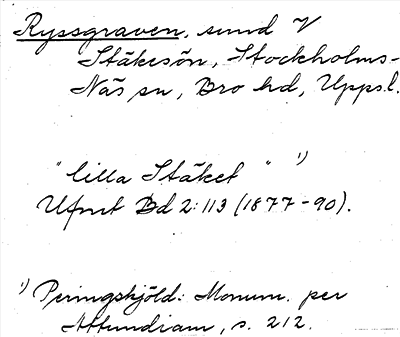 Ryssgraven, sund V
Stäketsön, Stockholms-
Näs sn, Bro hd, Upps.l.
"lilla Stäket" ¹)
Ufmt Bd 2:113 (1877-90).
¹) Peringskjöld: Monum. per
Attundiam, s. 212.